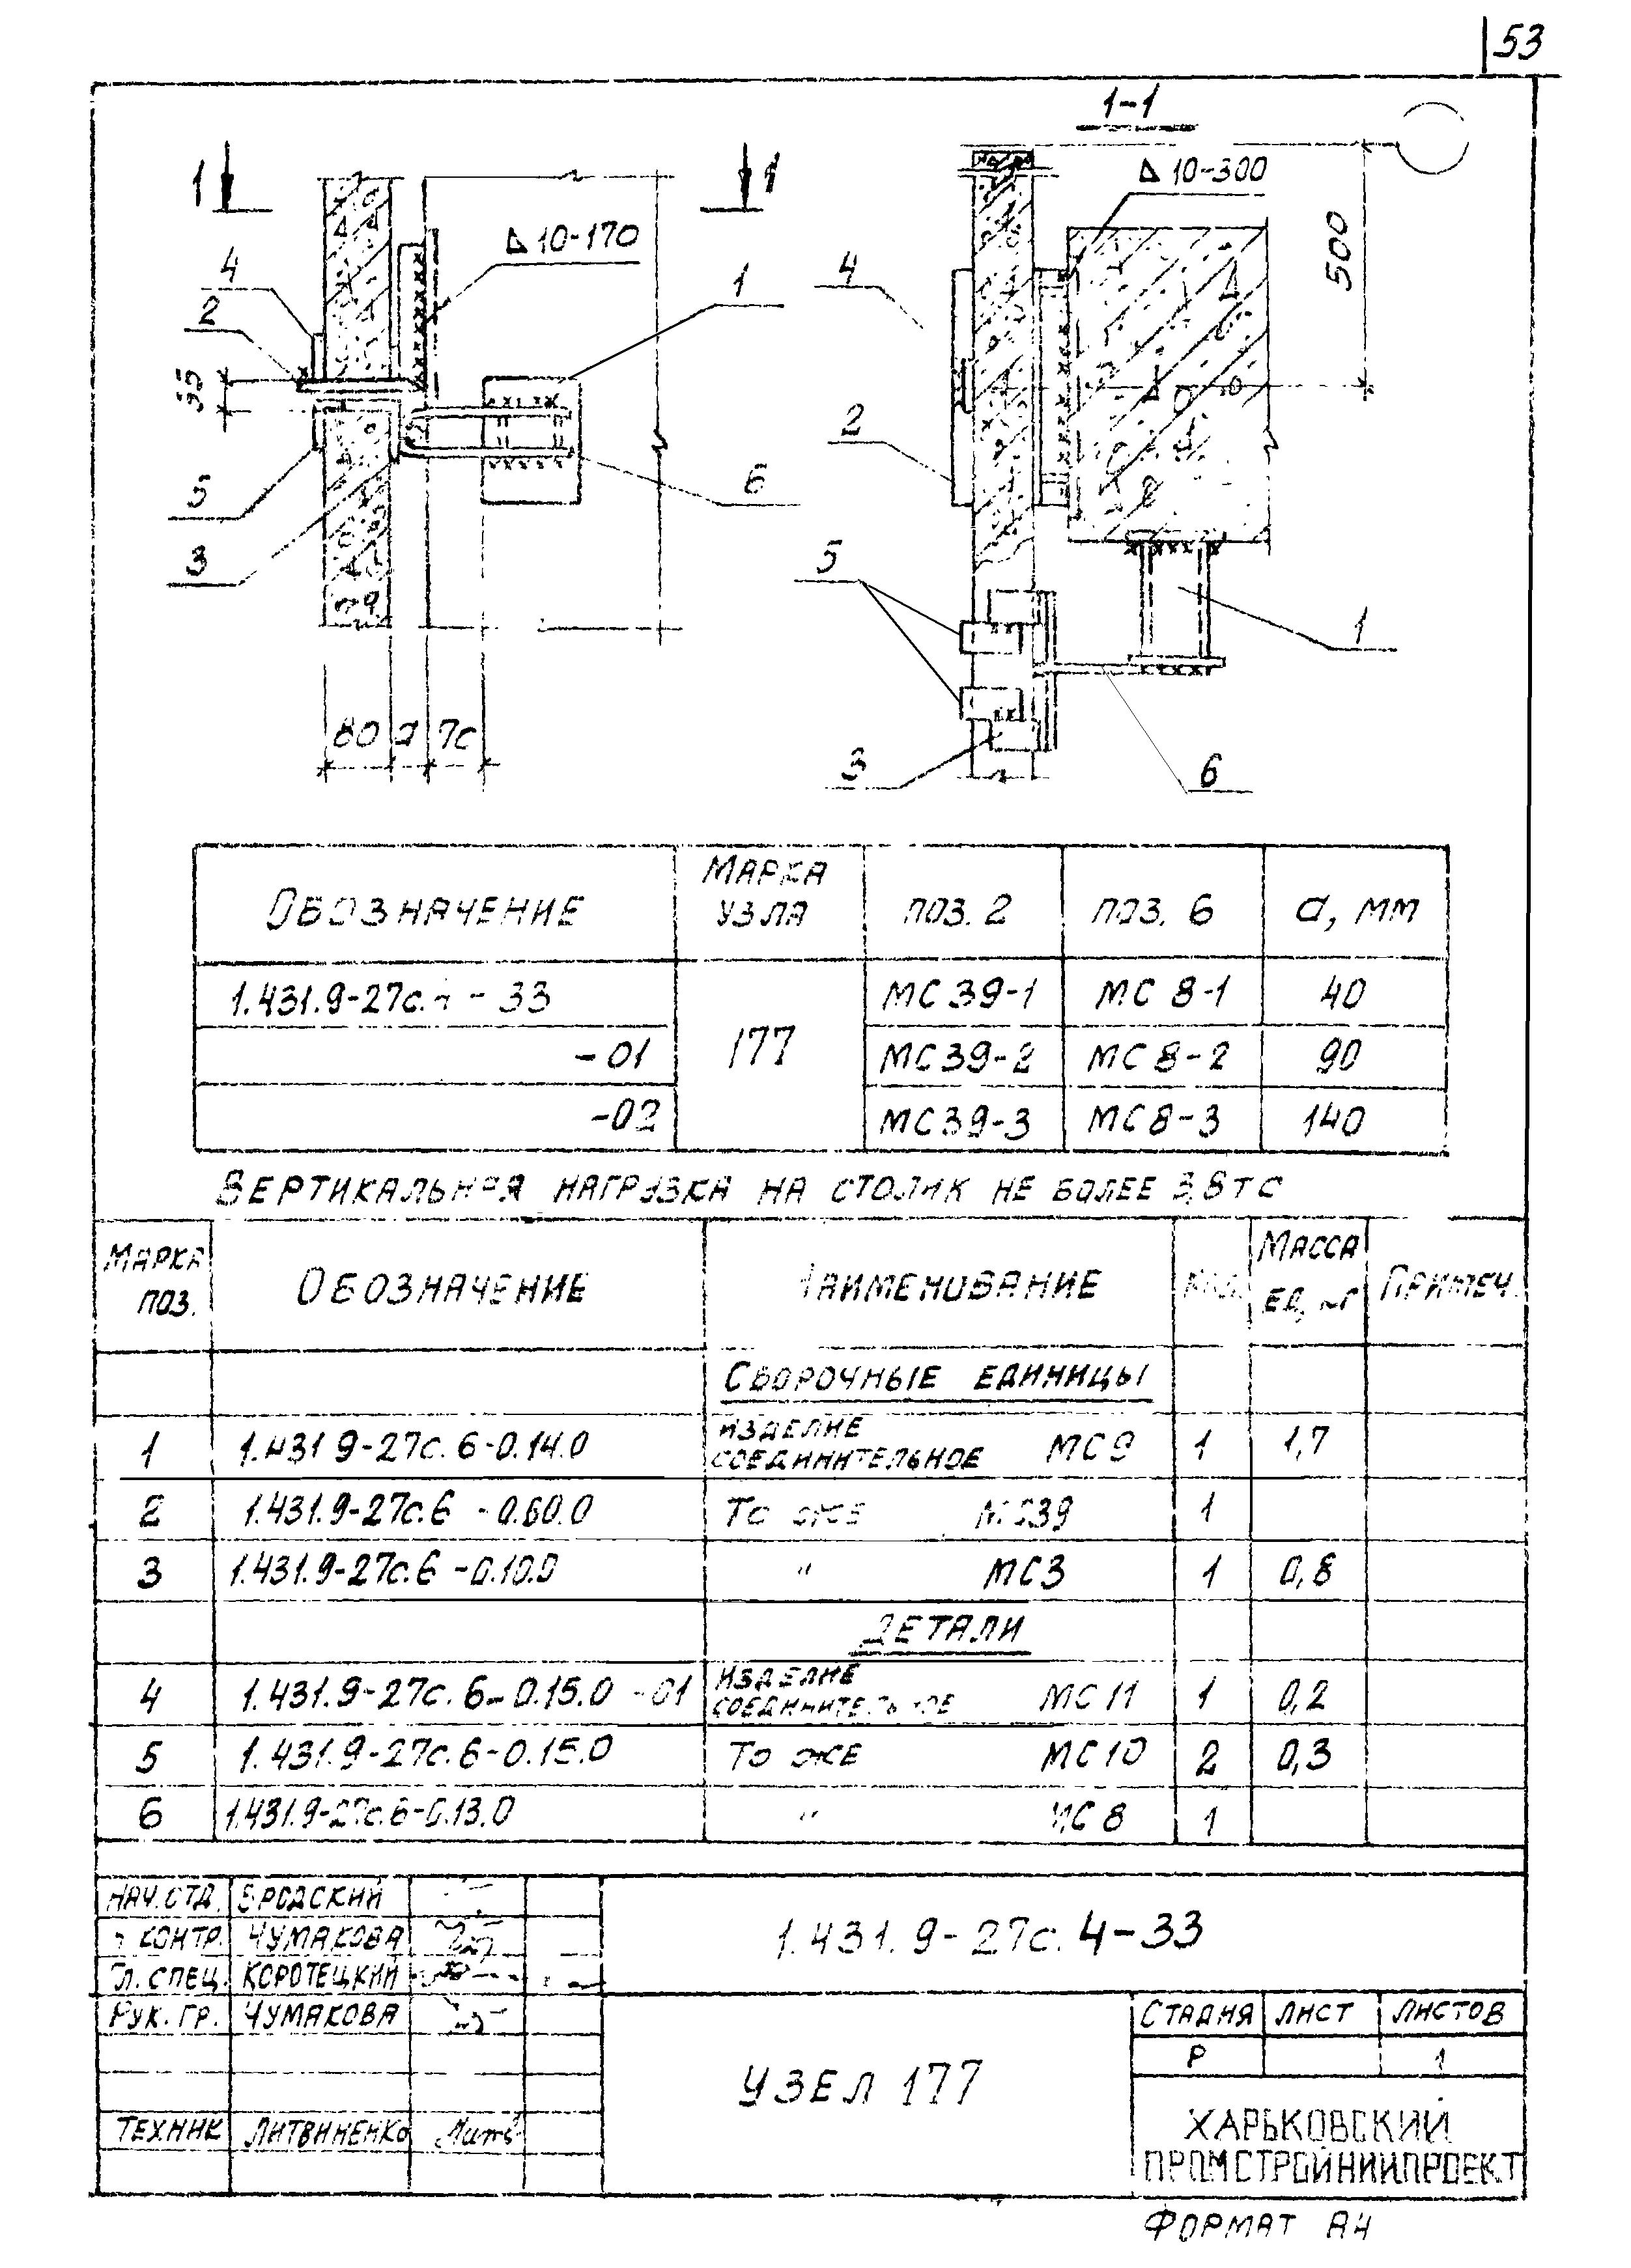 53
1-1
1 1
Δ 10-300
Δ 10-170
500
4
2
35
5
3
1
6
80 а
4
2
5
3
1
6
Обозначение Марка узла поз. 2 поз. 6 а, мм
1.431.9-27с.4 - 33 177 МС 39-1 МС 8-1 40
-01 МС 39-2 МС 8-2 90
-02 МС 39-3 МС 8-3 140
Вертикальная нагрузка на столик не более 3,8тс
Марка поз. Обозначение Наименование Кол. Масса ед, кг Примеч.
Сборочные единицы
1 1.431.9-27с.6-0.14.0 Изделие соединительное МС 9 1 1,7
2 1.431.9-27с.6 -0.60.0 То же МС39 1
3 1.431.9-27с.6 -0.10.0 " МС3 1 0,8
Детали
4 1.431.9-27с.6-0.15.0 -01 Изделие соединительное МС 11 1 0,2
5 1.431.9-27с.6-0.15.0 То же МС 10 2 0,3
6 1.431.9-27с.6-0.13.0 " МС 8 1
Нач. отд. Бродский
Н. контр. Чумакова
Гл. спец. Коротецкий
Рук. гр. Чумакова
Техник Литвиненко Литв
1.431.9-27с.4-33
Узел 177
Стадия Лист Листов
Р 1
Харьковский
Промстройниипроект
Формат А4